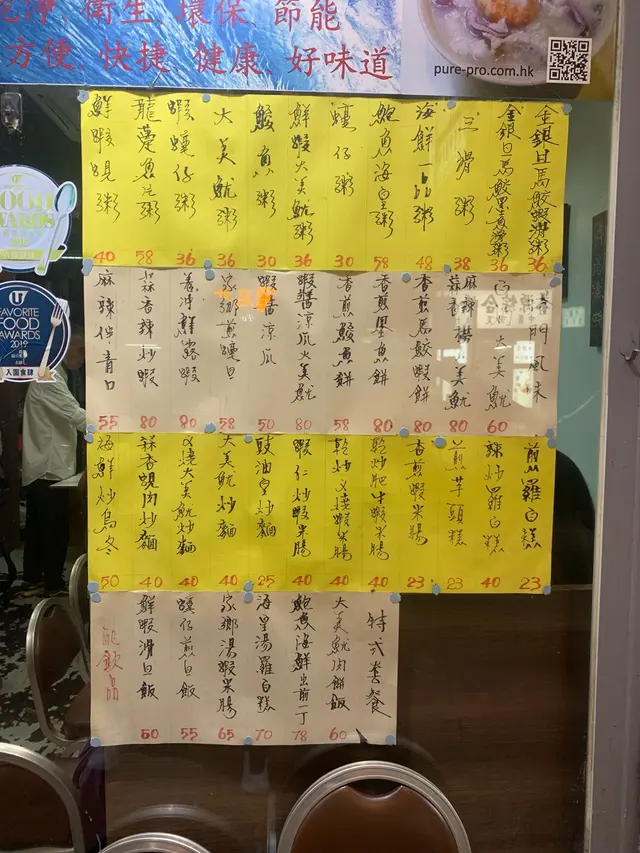 乾淨, 衛生, 環保, 節能
方便, 快捷, 健康, 好味道
pure-pro.com.hk
FAVORITE
FOOD
AWARDS
2019
入圍食肆
金銀旦馬鮫蝦滑粥 36
36
三滑粥 38
海鮮一品粥 48
鮑魚海皇粥 58
蠔仔粥 30
鮮蝦大美魷粥 36
鯪魚粥 30
大美魷粥 36
蝦蠔仔粥 36
龍躉魚片粥 58
鮮蝦蜆粥 40
港門風味
白灼大美魷 60
80
香煎馬鮫蝦餅 80
香煎墨魚餅 80
香煎鯪魚餅 58
蝦醬涼瓜大美魷 80
蝦醬涼瓜 50
家鄉煎蠔旦 58
80
蒜香辣炒蝦 80
麻辣伴青口 55
煎羅白糕 23
辣炒羅白糕 40
煎芋頭糕 23
香煎蝦米腸 23
乾炒肥牛蝦米腸 40
乾炒叉燒蝦米腸 40
蝦仁炒蝦米腸 40
豉油皇炒麵 25
大美魷炒麵 40
叉燒大美魷炒麵 40
蒜香蜆肉炒麵 40
海鮮炒烏冬 50
特式套餐
大美魷肉餅飯 60
鮑魚海鮮出前一丁 78
海皇湯羅白糕 70
家鄉湯蝦米腸 65
蠔仔煎旦飯 55
鮮蝦滑旦飯 50